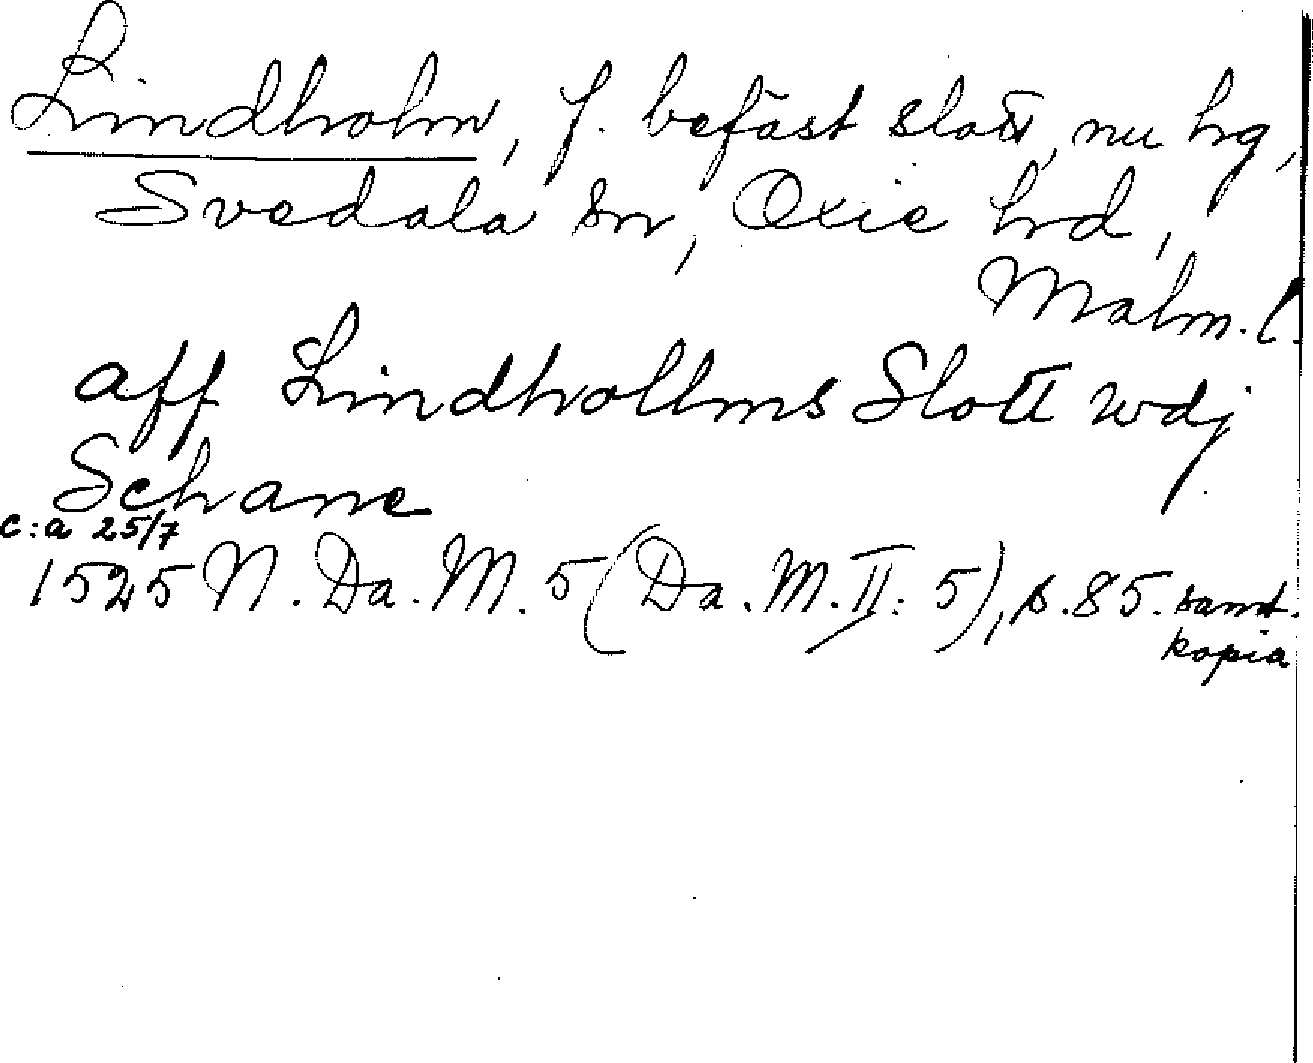 Lindholm, f. befäst slott, nu hg,
Svedala sn, Oxie hd,
Malm. l.
aff Lindhollms Slott wdj
Schane
c:a 25/7
1525 N. Da. M. 5 (Da. M. II: 5), s. 85. samt.
kopia